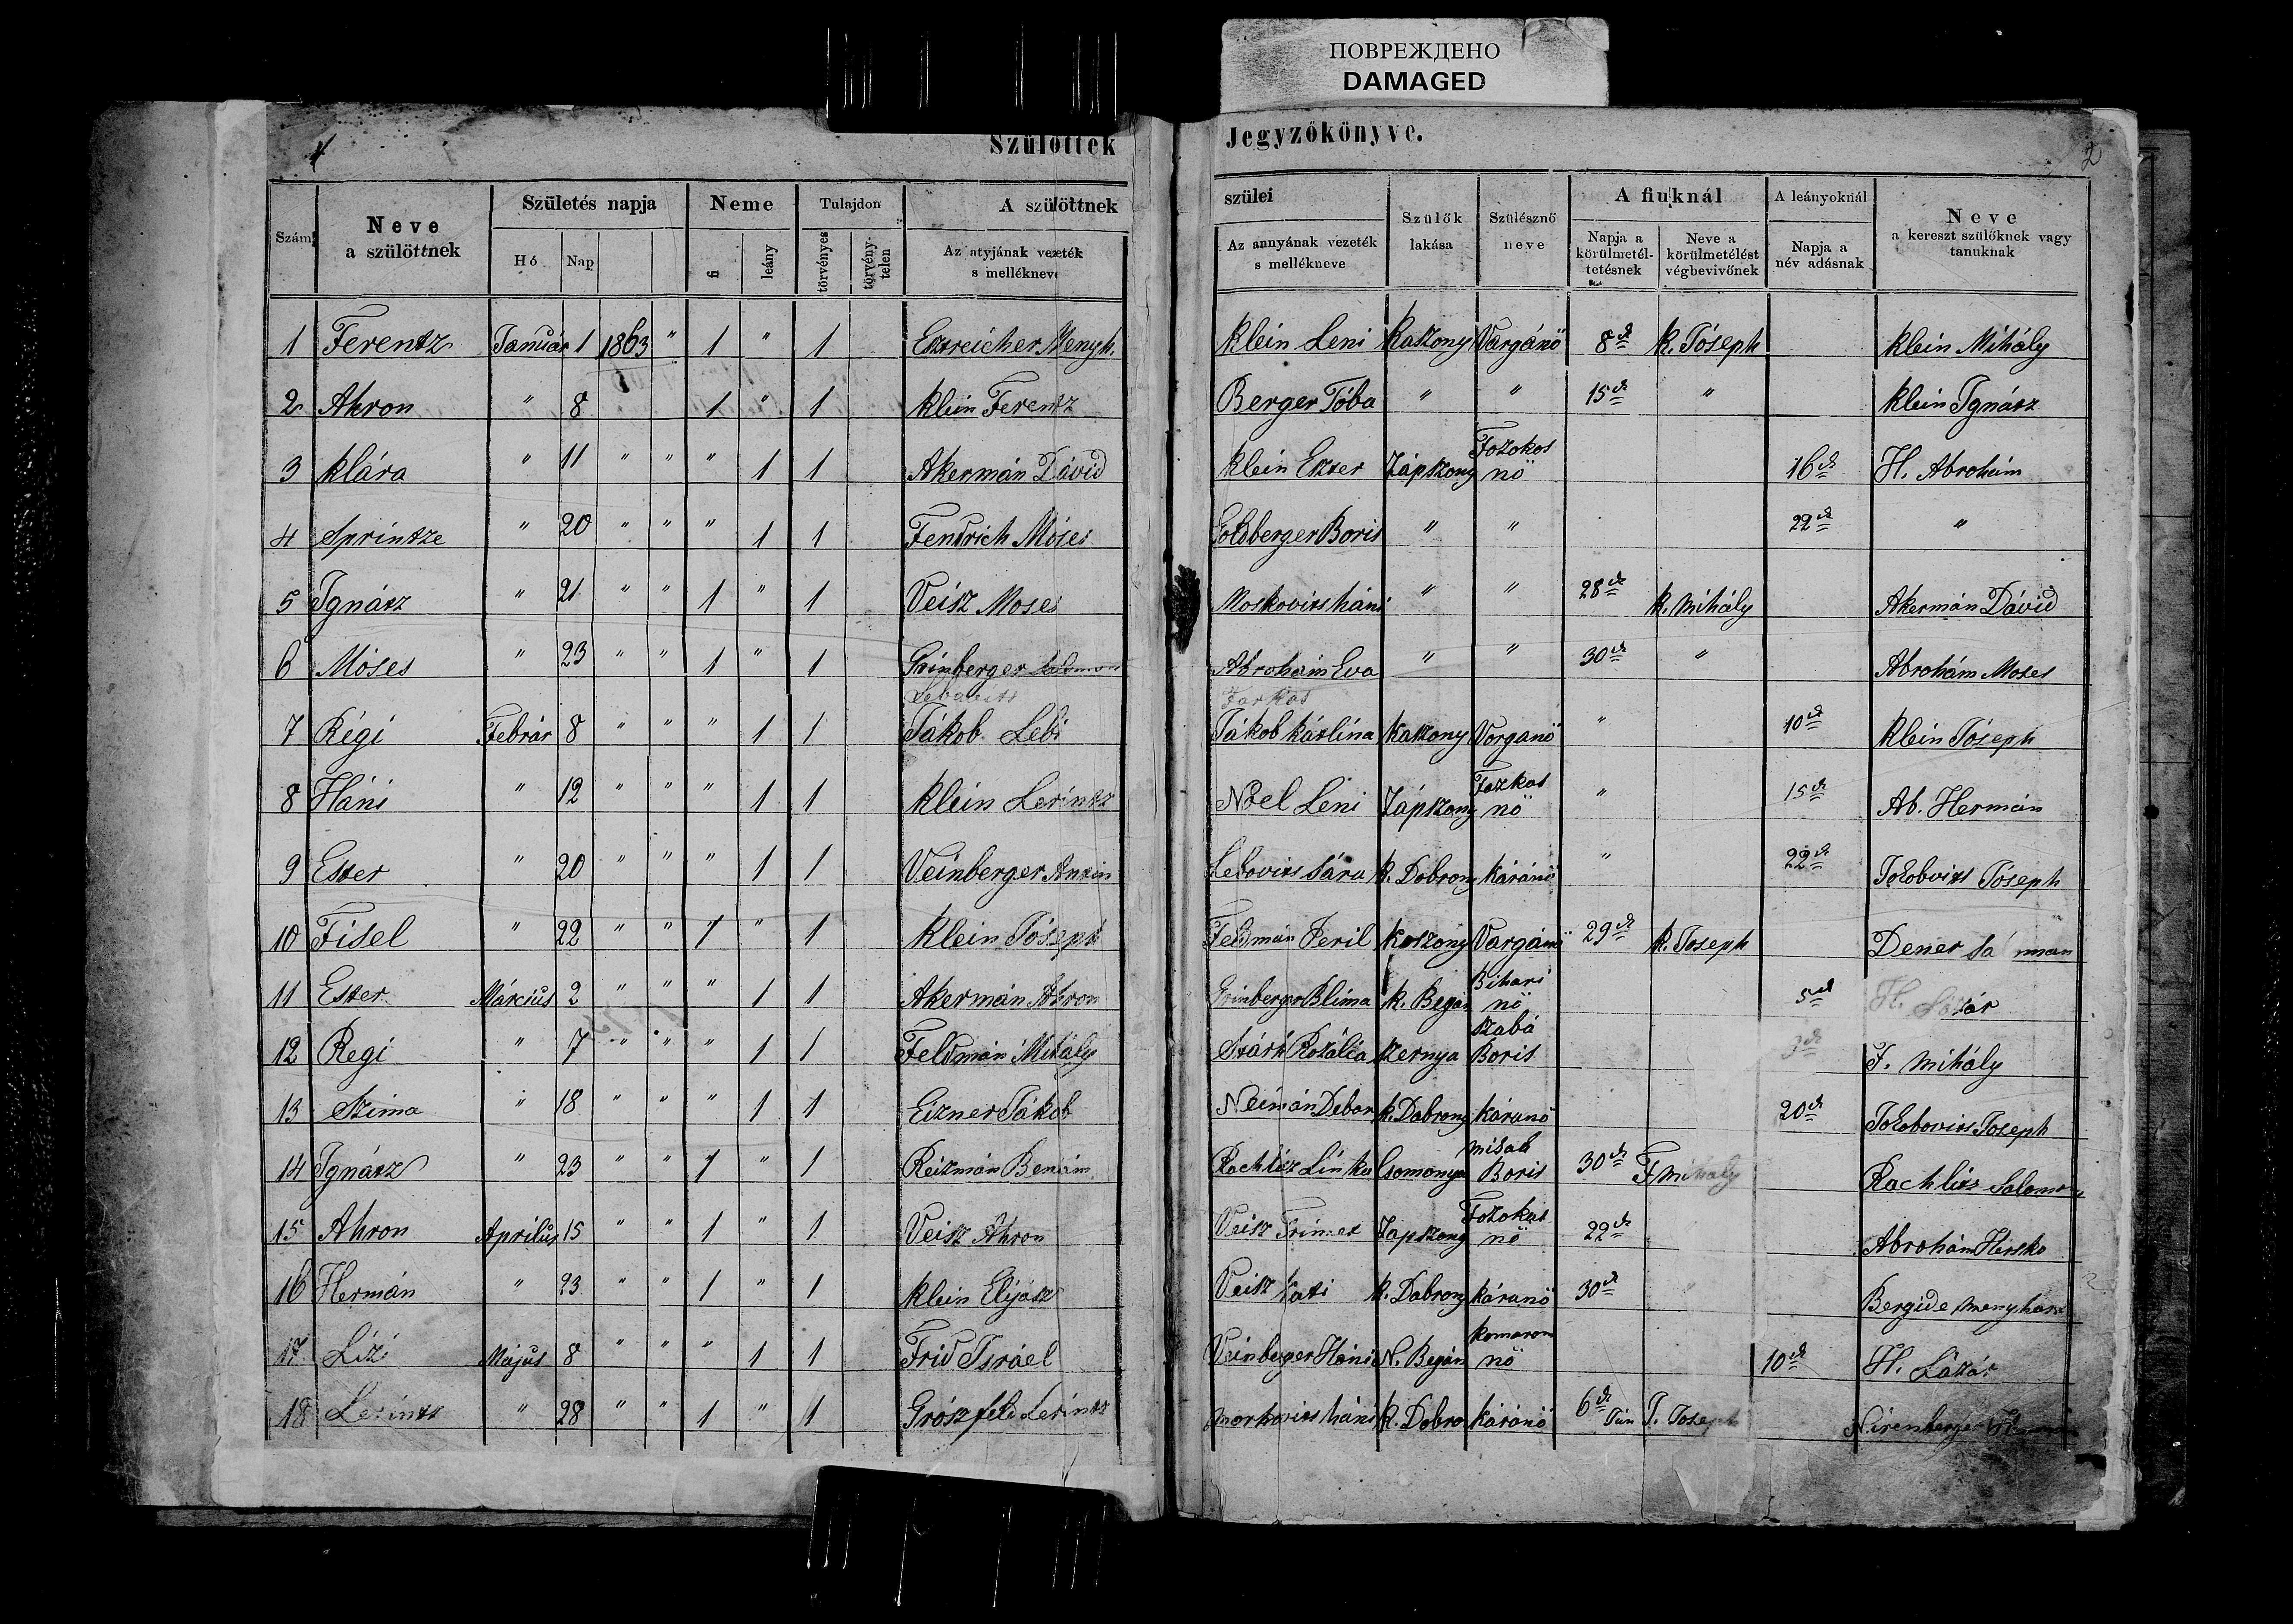 ПОВРЕЖДЕНО
DAMAGED
1
Szülöttek
Jegyzőkönyve.
2
Szám
Neve a szülöttnek
Születés napja
Hó
Nap
Neme
fi
leány
Tulajdon
törvényes
törvény-telen
A szülöttnek
Az atyjának vezeték s mellékneve
szülei
Az annyának vezeték s mellékneve
Szülők lakása
Szülésznő neve
A fiuknál
Napja a körülmetél-tetésnek
Neve a körülmetélést végbevivőnek
A leányoknál
Napja a név adásnak
Neve a kereszt szülőknek vagy tanuknak
1 Ferentz Január 1 1863 " 1 " 1 Esztreicher Menyh. Klein Leni Kaszony Vargánö 8ik K. Jóseph Klein Mihály
2 Ahron " 8 1 " 1 Klein Ferentz Berger Tóba " " 15ik " Klein Ignátz
3 Klára " 11 " " " 1 1 Akermán Dávid Klein Eszter Zápszony Fozokos nö 16ik H. Abrohám
4 Sprintze " 20 " " " 1 1 Fendrich Móses Goldberger Boris " " 22ik "
5 Ignátz " 21 " " 1 " 1 Veisz Moses Moskovits háni " " 28ik K. Mihály Akermán Dávid
6 Móses " 23 " " 1 " 1 Grinberger Salamon Abrohám Eva " " 30ik " Abrohám Moses
Farkas
7 Régi Febrár 8 " " " 1 1 Jákob Lebi Jákob Kárlina Kaszony Vorganö " 10ik Klein Jóseph
8 Háni " 12 " " " 1 1 Klein Lerintz Noel Leni Zápszony Fozkos nö " 15ik Ab. Hermán
9 Ester " 20 " " " 1 1 Veinberger Antin Lebovits Sáru K. Dobrony Káránö " 22ik Jokobvits Jóseph
10 Fisel " 22 " " 1 " 1 Klein Jóseph Feldmán Peril Koszony Vargánö 29ik K. Joseph Dener Sá man
11 Ester Március 2 " " " 1 1 Akermán Ahron Grinberger Blima K. Begán Bihari nö 5ik H.
12 Regi " 7 " " " 1 1 Feldmán Mihály Stárk Rozália Szernya Szabá Boris 3ik F. Mihály
13 Szima " 18 " " " 1 1 Eizner Jákob Neimán Debor K. Dobrony Káranö 20ik Jokobovits Joseph
14 Ignátz " 23 " " 1 " 1 Reizmán Beniám Rachlitz Linka Csomonya Misak Boris 30ik F Mihály Rachlitz Salamon
15 Ahron Aprilus 15 " " 1 " 1 Veisz Ahron Veisz Frimet Zapszony Fozokos nö 22ik Abrohám Hersko
16 Hermán " 23 " " 1 " 1 Klein Elijász Veisz Kati K. Dobrony Káranö 30ik " Bergide Menyhart
17 Lizi Május 8 " " " 1 1 Frid Israel Veinberger Háni N. Begán Komaron nö 10ik H. Lázár
18 Lerintz " 28 " " 1 " 1 Grószfeld Lerintz Morkovits háni K. Dobro Káránö 6ik Jun J. Joseph Nirenberger